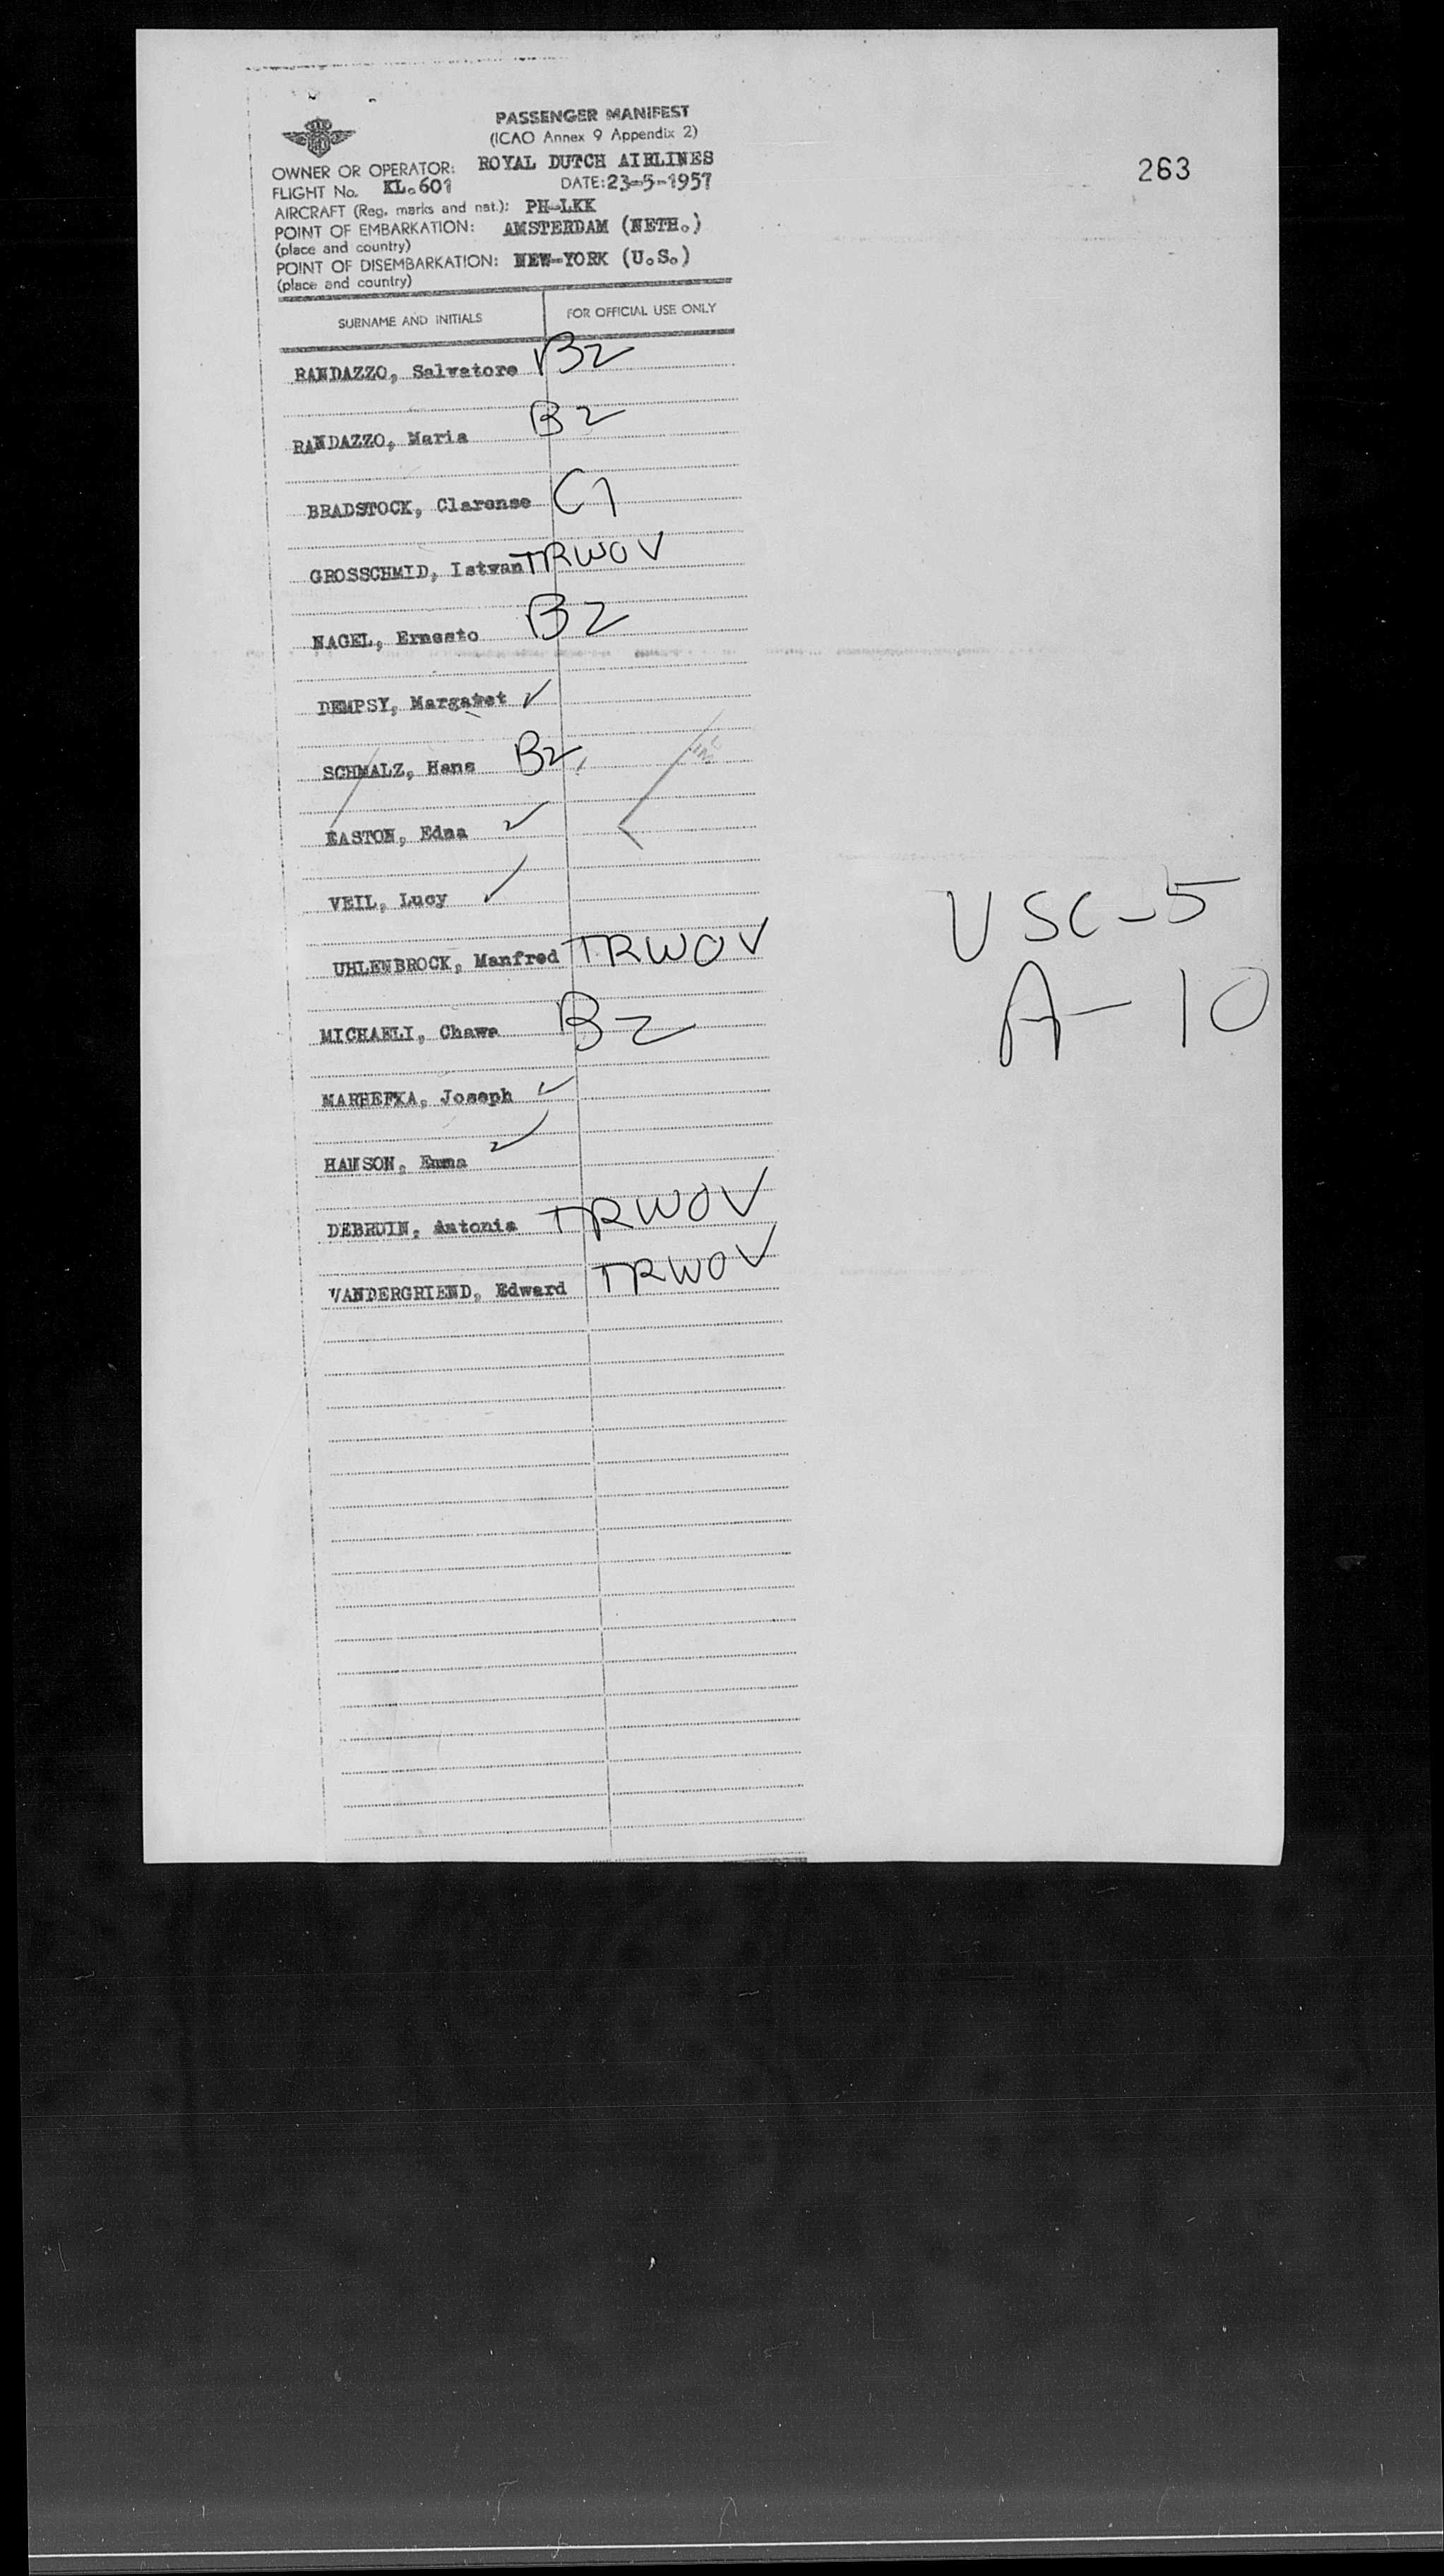 263
PASSENGER MANIFEST
(ICAO Annex 9 Appendix 2)
OWNER OR OPERATOR: ROYAL DUTCH AIRLINES
FLIGHT No. KL.601 DATE: 23-5-1957
AIRCRAFT (Reg. marks and nat.): PH-LKK
POINT OF EMBARKATION: AMSTERDAM (NETH.)
(place and country)
POINT OF DISEMBARKATION: NEW-YORK (U.S.)
(place and country)
SURNAME AND INITIALS FOR OFFICIAL USE ONLY
RANDAZZO, Salvatore B2
RANDAZZO, Maria B2
BRADSTOCK, Clarense C1
GROSSCHMID, Istwan TRWOV
NAGEL, Ernesto B2
DEMPSY, Margaret ✓
SCHMALZ, Hans B2
EASTON, Edna ✓
VEIL, Lucy ✓
UHLENBROCK, Manfred TRWOV
MICHAELI, Chawa B2
MARHEFKA, Joseph ✓
HANSON, Emma ✓
DEBRUIN, Antonia TRWOV
VANDERGRIEND, Edward TRWOV
USC-5
A-10